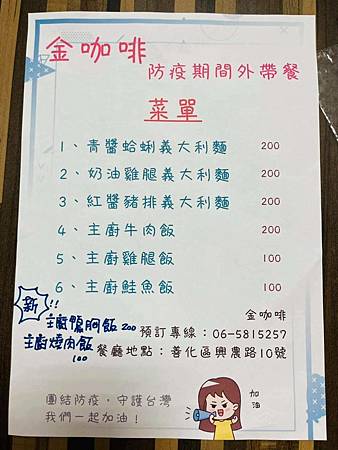 金咖啡
防疫期間外帶餐
菜單
1、青醬蛤蜊義大利麵 200
2、奶油雞腿義大利麵 200
3、紅醬豬排義大利麵 200
4、主廚牛肉飯 200
5、主廚雞腿飯 100
6、主廚鮭魚飯 100
新!!
主廚鴨胸飯 200
主廚燒肉飯 100
金咖啡
預訂專線：06-5815257
餐廳地點：善化區興農路10號
團結防疫，守護台灣
我們一起加油！
加油